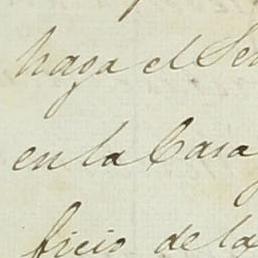 haga el Se
en la Casa
ficio de la